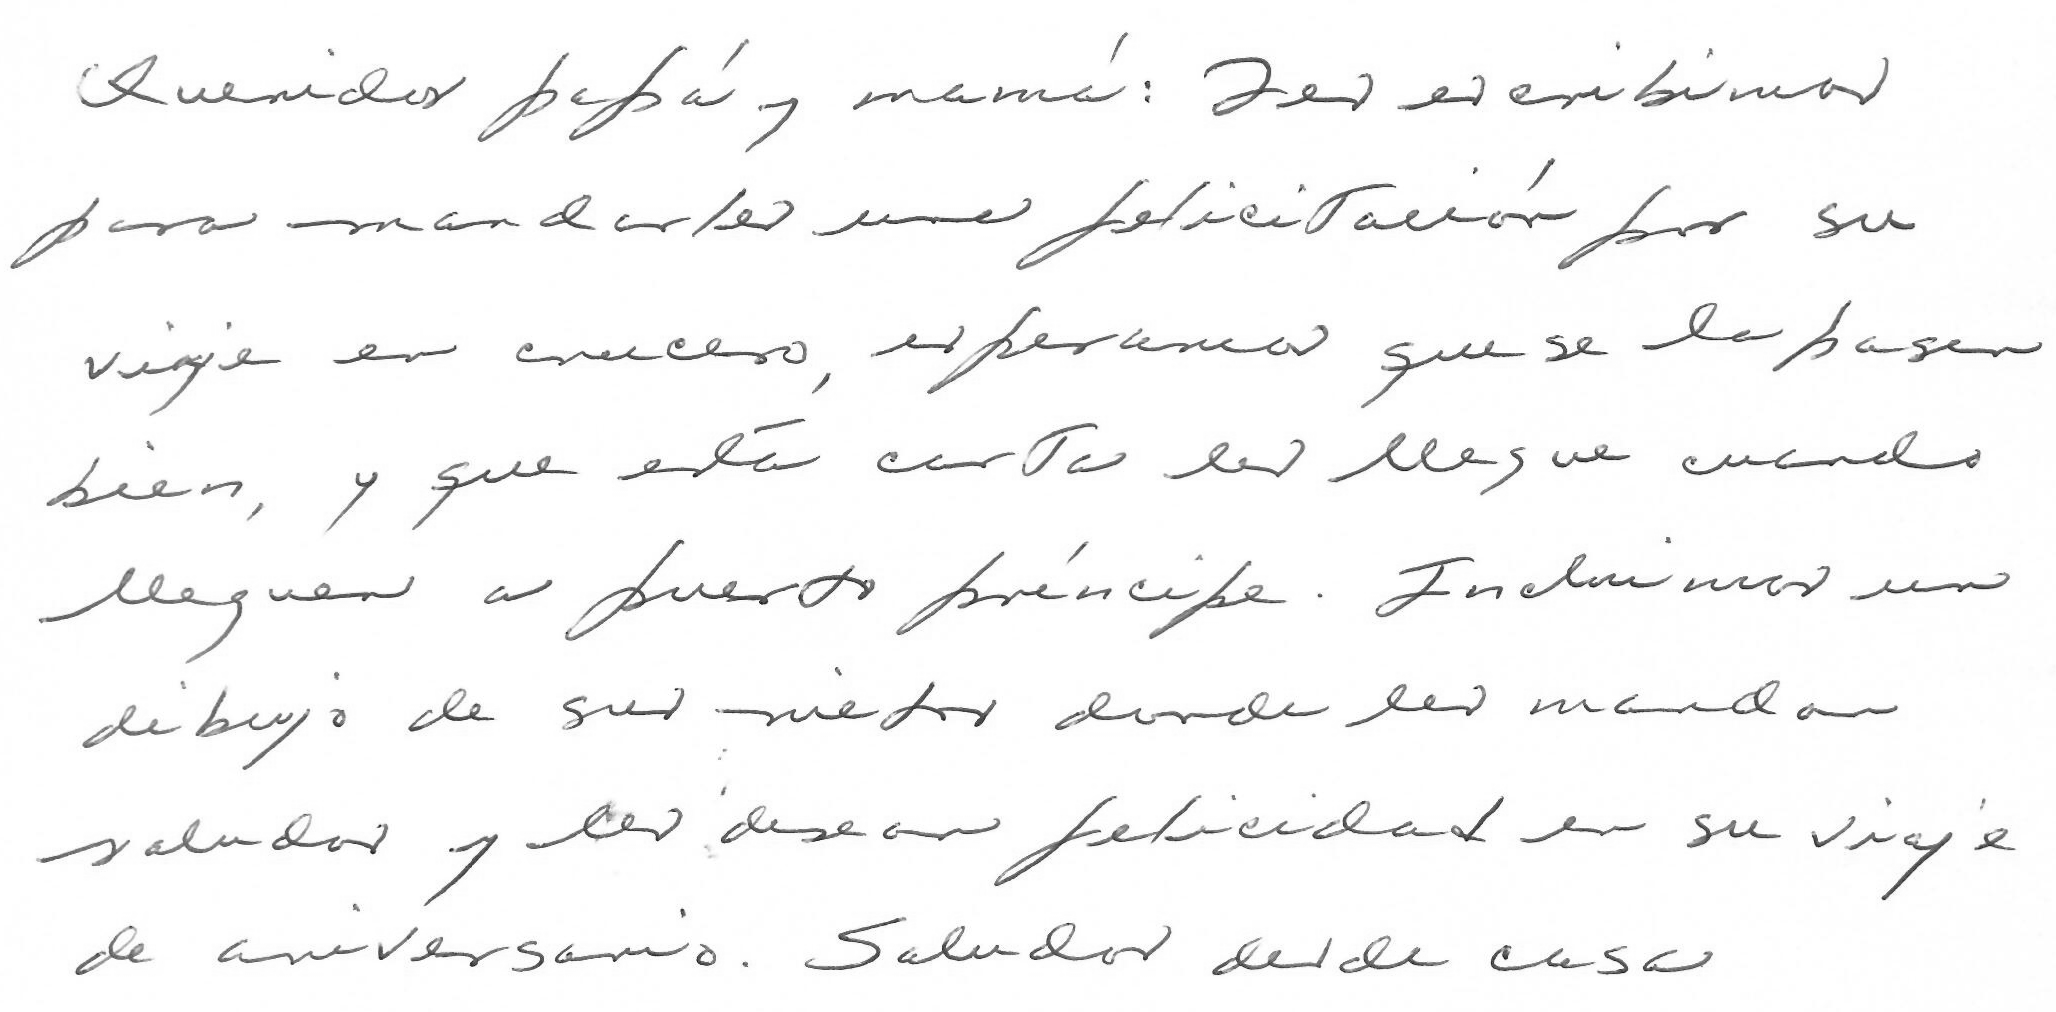 Queridos papá y mamá: Les escribimos
para mandarles una felicitación por su
viaje en crucero, esperamos que se la pasen
bien, y que está carta les llegue cuando
lleguen a puerto príncipe. Incluimos un
dibujo de sus nietos donde les mandan
saludos y les desean felicidad en su viaje
de aniversario. Saludos desde casa